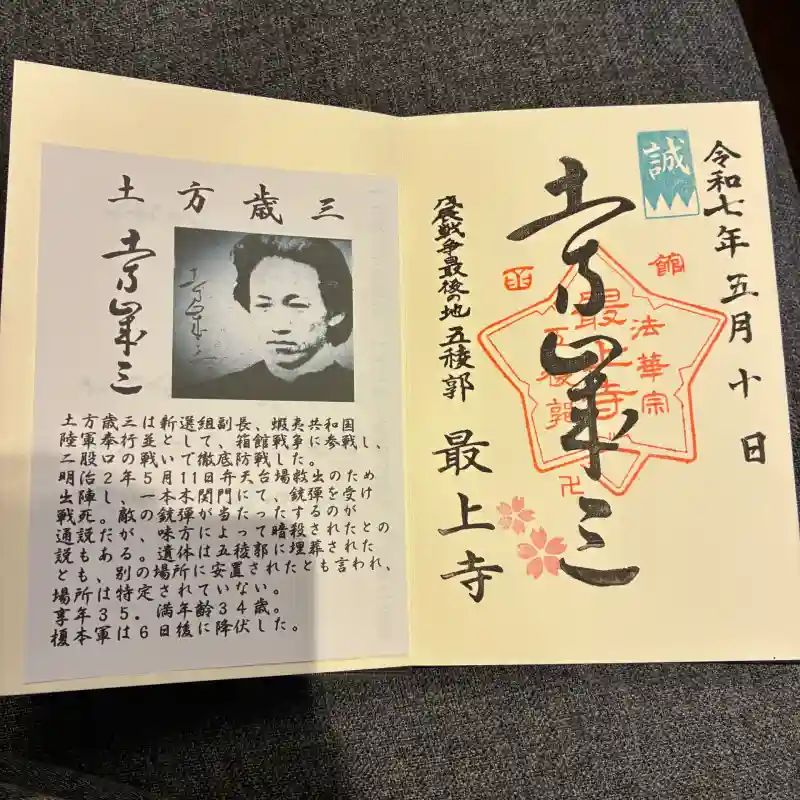 土方歳三
土方歳三
土方歳三は新選組副長、蝦夷共和国
陸軍奉行並として、箱館戦争に参戦し、
二股口の戦いで徹底防戦した。
明治2年5月11日弁天台場救出のため
出陣し、一本木関門にて、銃弾を受け
戦死。敵の銃弾が当たったするのが
通説だが、味方によって暗殺されたとの
説もある。遺体は五稜郭に埋葬された
とも、別の場所に安置されたとも言われ、
場所は特定されていない。
享年35．満年齢34歳。
榎本軍は6日後に降伏した。
令和七年五月十日
誠
土方歳三
函館
法華宗
最上寺
五稜郭
卍
戊辰戦争最後の地 五稜郭
最上寺